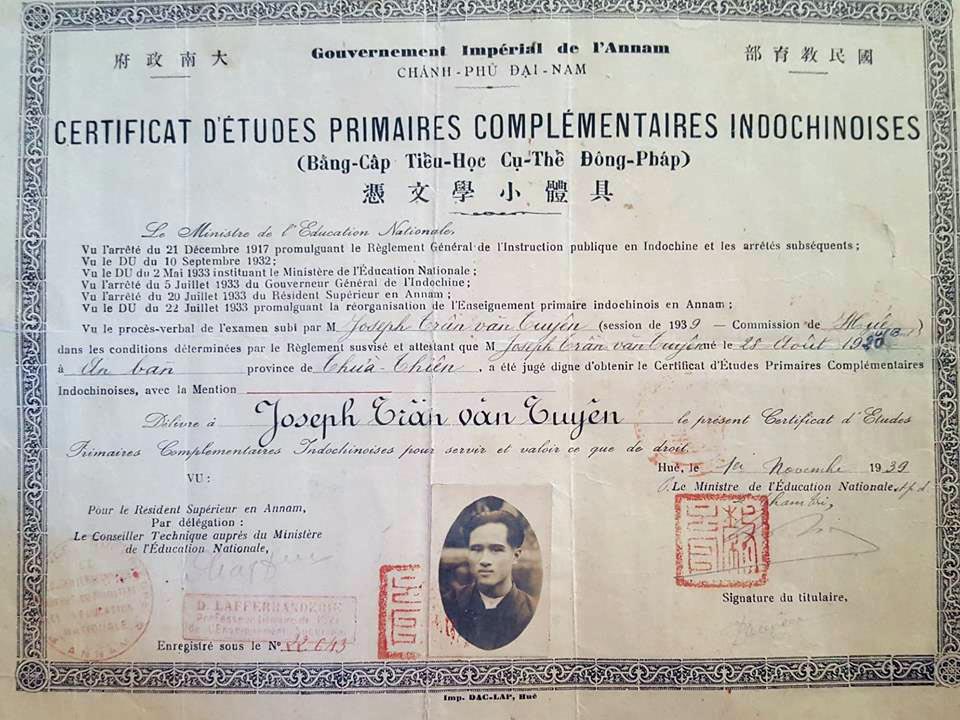 府政南大
Gouvernement Impérial de l'Annam
部育教民國
CHÁNH-PHỦ ĐẠI-NAM
CERTIFICAT D'ÉTUDES PRIMAIRES COMPLÉMENTAIRES INDOCHINOISES
(Bằng-Cấp Tiểu-Học Cụ-Thể Đông-Pháp)
憑文學小體具
Le Ministre de l'Education Nationale,
Vu l'arrêté du 21 Décembre 1917 promulguant le Règlement Général de l'Instruction publique en Indochine et les arrêtés subséquents ;
Vu le DU du 10 Septembre 1932 ;
Vu le DU du 2 Mai 1933 instituant le Ministère de l'Éducation Nationale ;
Vu l'arrêté du 5 Juillet 1933 du Gouverneur Général de l'Indochine ;
Vu l'arrêté du 20 Juillet 1933 du Résident Supérieur en Annam ;
Vu le DU du 22 Juillet 1933 promulgant la réorganisation de l'Enseignement primaire indochinois en Annam ;
Vu le procès-verbal de l'examen subi par M Joseph Trần văn Tuyên (session de 1939 — Commission de Huế)
dans les conditions déterminées par le Règlement susvisé et attestant que M Joseph Trần văn Tuyên né le 28 Août
à An ban province de Thừa-Thiên, a été jugé digne d'obtenir le Certificat d'Études Primaires Complémentaires
Indochinoises, avec la Mention
Délivré à Joseph Trần văn Tuyên le présent Certificat d'Etudes
Primaires Complementaires Indochinoises pour servir et valoir ce que de droit.
Huê, le 1er Novembre 1939
VU :
Le Ministre de l'Éducation Nationale,
Pour le Resident Supérieur en Annam,
Par délégation :
Le Conseiller Technique auprès du Ministère
de l'Éducation Nationale,
D. LAFFERRANDERIE
de l'Enseignement
Signature du titulaire,
Enregistré sous le Nº
Imp. DAC-LAP, Huê